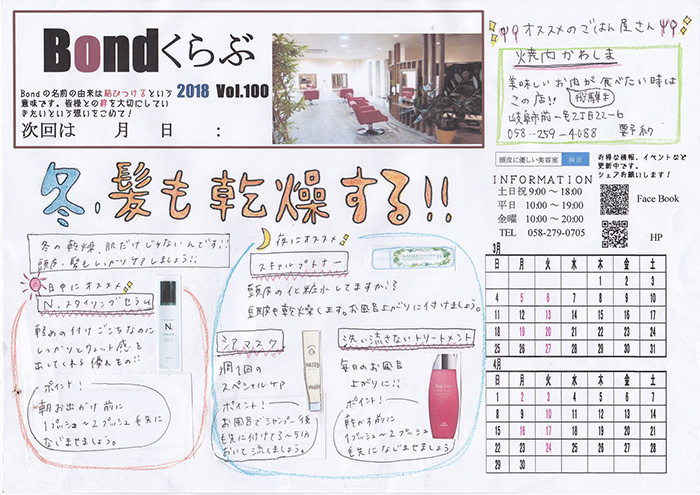 Bondくらぶ
Bondの名前の由来は結びつけるという
意味です。皆様との絆を大切にしてい
きたいという想いをこめて！
2018 Vol.100
次回は 月 日 :
オススメのごはん屋さん
焼肉かわしま
美味しいお肉が食べたい時は
この店!! 飛騨牛
岐阜市前一色2丁目22-6
058-259-4088
頭皮に優しい美容室 検索
お得な情報、イベントなど
更新中です。
シェアお願いします！
INFORMATION
土日祝 9:00 ～ 18:00
平日 10:00 ～ 19:00
金曜 10:00 ～ 20:00
TEL 058-279-0705
Face Book
HP
冬、髪も乾燥する!!
冬の乾燥、肌だけじゃないんです!!
頭皮、髪もしっかりケアしましょう!!
日中にオススメ
N.スタイリングセラム
軽めの付けごこちなのに
しっかりとウェット感を
出してくれる優れもの!!
ポイント！
朝お出かけ前に
1プッシュ～2プッシュ毛先に
なじませましょう。
N.
夜にオススメ
スキャルプトナー
頭皮の化粧水してますか!?
豆頭皮も乾燥します。お風呂上がりに付けましょう。
シアマスク
週1回の
スペシャルケア
ポイント！
お風呂でシャンプー後
毛先に付けて3～5分
おいて流しましょう。
洗い流さないトリートメント
毎日のお風呂
上がりに!!
ポイント！
乾かす前に
1プッシュ～2プッシュ
毛先になじませましょう
3月
日 月 火 水 木 金 土
1 2 3
4 5 6 7 8 9 10
11 12 13 14 15 16 17
18 19 20 21 22 23 24
25 26 27 28 29 30 31
4月
日 月 火 水 木 金 土
1 2 3 4 5 6 7
8 9 10 11 12 13 14
15 16 17 18 19 20 21
22 23 24 25 26 27 28
29 30